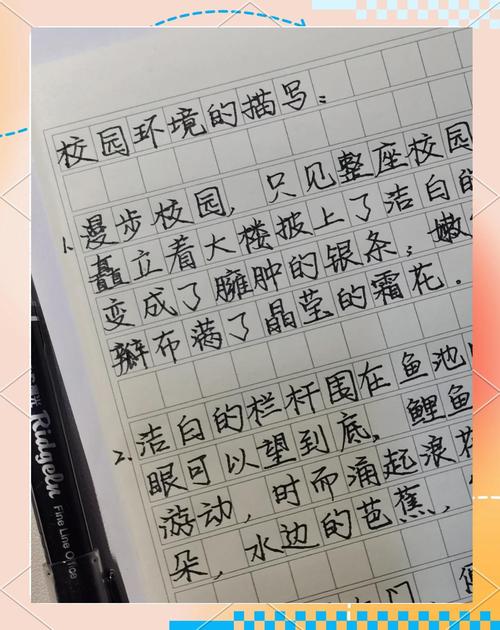 校园环境的描写：
1. 漫步校园，只见整座校园
矗立着大楼披上了洁白的
变成了臃肿的银条；嫩
瓣布满了晶莹的霜花.
2. 洁白的栏杆围在鱼池
眼可以望到底，鲤鱼
游动，时而涌起浪花
朵，水边的芭蕉，
门
Ridgeln
Fine Line Office